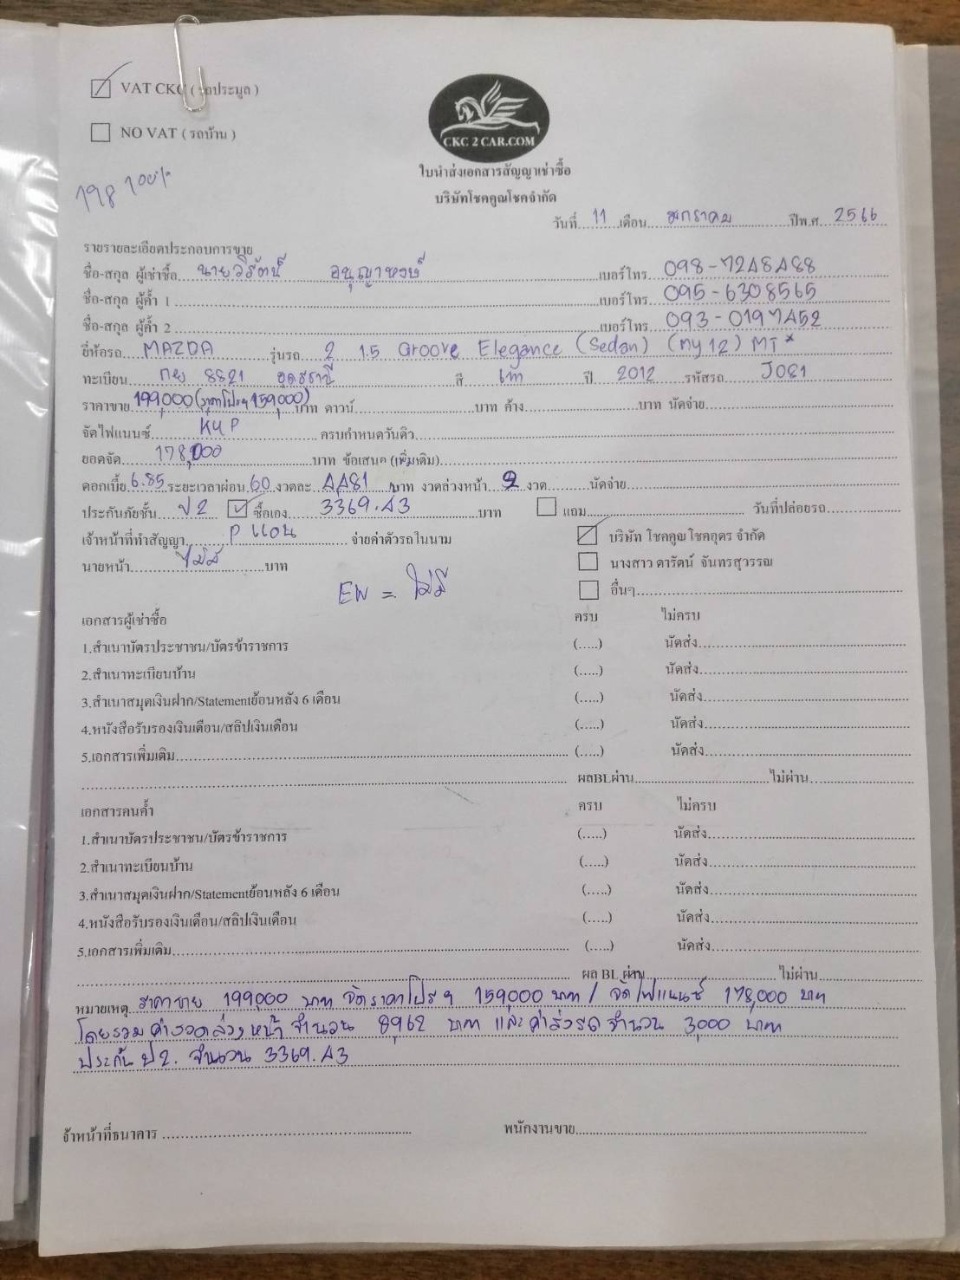 VAT CKC ( รถประมูล )
NO VAT ( รถบ้าน )
CKC 2 CAR.COM
ใบนำส่งเอกสารสัญญาเช่าซื้อ
บริษัทโชคคูณโชคจำกัด
198 100%
วันที่ 11 เดือน มกราคม ปีพ.ศ. 2566
รายรายละเอียดประกอบการขาย
ชื่อ-สกุล ผู้เช่าซื้อ นายวิรัตน์ อนุญาหงษ์ เบอร์โทร 098-7248488
ชื่อ-สกุล ผู้ค้ำ 1 เบอร์โทร 095-6308565
ชื่อ-สกุล ผู้ค้ำ 2 เบอร์โทร 093-0197452
ยี่ห้อรถ MAZDA รุ่นรถ 2 1.5 Groove Elegance (Sedan) (my 12) MT *
ทะเบียน กย 8821 อุดรธานี สี เทา ปี 2012 รหัสรถ J081
ราคาขาย 199,000 (ราคาโปรฯ 159,000) บาท ดาวน์ บาท ค้าง บาท นัดจ่าย
จัดไฟแนนซ์ KKP ครบกำหนดวันดิว
ยอดจัด 178,000 บาท ข้อเสนอ (เพิ่มเติม)
ดอกเบี้ย 6.85 ระยะเวลาผ่อน 60 งวดละ 4481 บาท งวดล่วงหน้า 2 งวด นัดจ่าย
ประกันภัยชั้น ป2 ซื้อเอง 3369.43 บาท แถม วันที่ปล่อยรถ
เจ้าหน้าที่ทำสัญญา P แอน จ่ายค่าตัวรถในนาม บริษัท โชคคูณโชคอุดร จำกัด
นายหน้า ไม่มี บาท นางสาว ดารัตน์ จันทรสุวรรณ
EW = ไม่มี อื่นๆ
เอกสารผู้เช่าซื้อ ครบ ไม่ครบ
1.สำเนาบัตรประชาชน/บัตรข้าราชการ (.....) นัดส่ง
2.สำเนาทะเบียนบ้าน (.....) นัดส่ง
3.สำเนาสมุดเงินฝาก/Statementย้อนหลัง 6 เดือน (.....) นัดส่ง
4.หนังสือรับรองเงินเดือน/สลิปเงินเดือน (.....) นัดส่ง
5.เอกสารเพิ่มเติม (.....) นัดส่ง
ผลBLผ่าน ไม่ผ่าน
เอกสารคนค้ำ ครบ ไม่ครบ
1.สำเนาบัตรประชาชน/บัตรข้าราชการ (.....) นัดส่ง
2.สำเนาทะเบียนบ้าน (.....) นัดส่ง
3.สำเนาสมุดเงินฝาก/Statementย้อนหลัง 6 เดือน (.....) นัดส่ง
4.หนังสือรับรองเงินเดือน/สลิปเงินเดือน (.....) นัดส่ง
5.เอกสารเพิ่มเติม (.....) นัดส่ง
ผล BL ผ่าน ไม่ผ่าน
หมายเหตุ ราคาขาย 199,000 บาท จัดราคาโปรฯ 159,000 บาท / จัดไฟแนนซ์ 178,000 บาท
โดยรวม ค่างวดล่วงหน้า จำนวน 8962 บาท และ ค่าส่งรถ จำนวน 3,000 บาท
ประกัน ป 2. จำนวน 3369.43
จ้าหน้าที่ธนาคาร พนักงานขาย